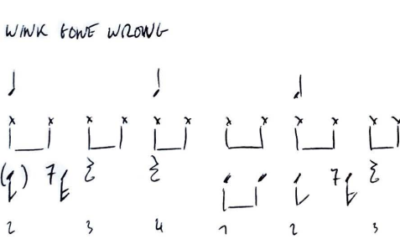 WINK GONE WRONG
2 3 4 1 2 3